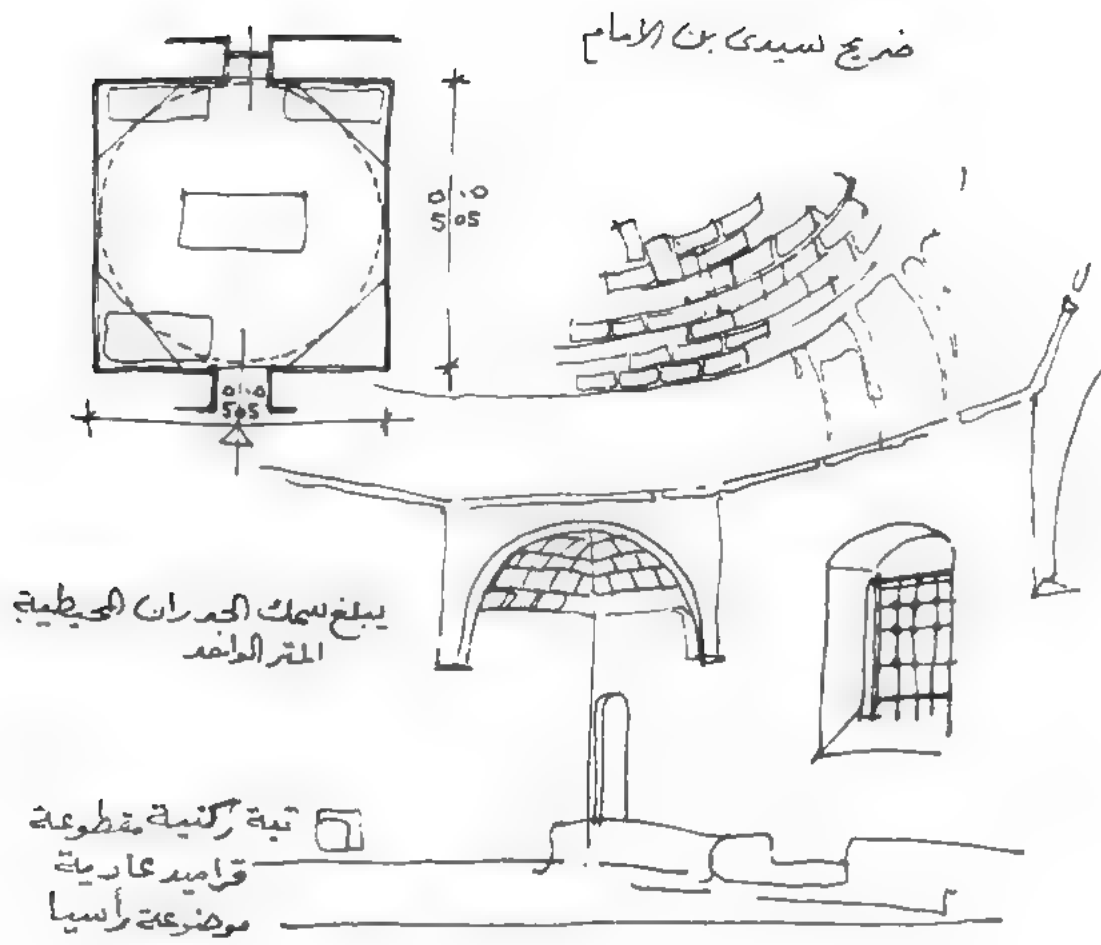 ضريح لسيدى بن الامام
0.0
505
0.0
505
يبلغ سمك الجدران المحيطية
المتر الواحد
قبة ركنية مقطوعة
قراميد عادية
موضوعة رأسيا